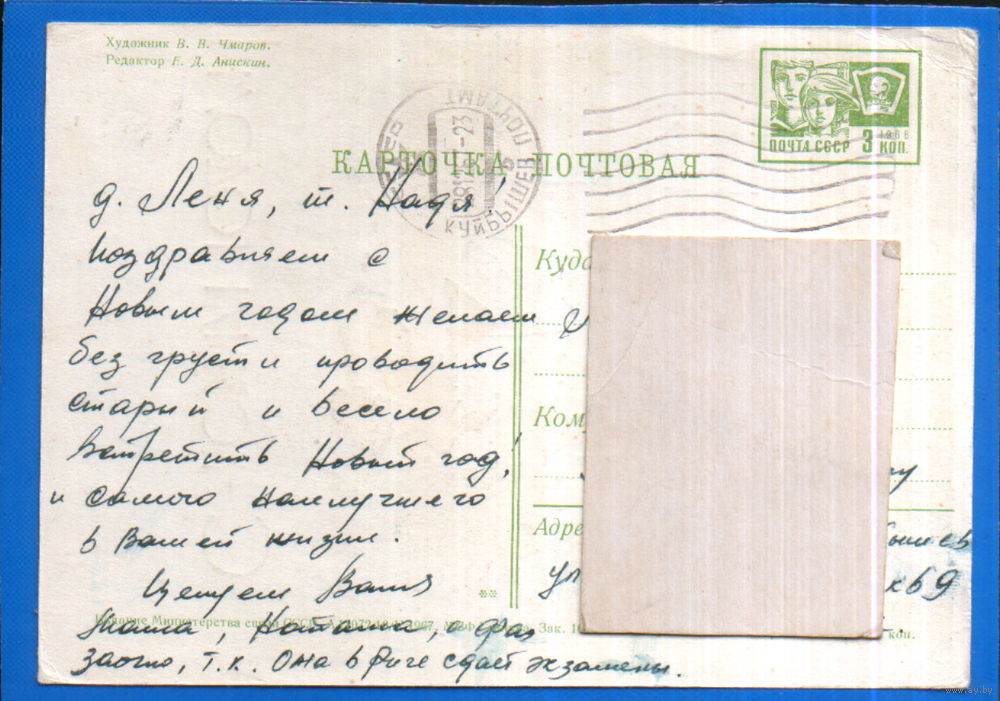 Художник В. В. Чмаров.
Редактор Е. Д. Анискин.
ПОЧТА СССР 3 КОП.
1966
КУЙБЫШЕВ ПОЧТАМТ
КАРТОЧКА ПОЧТОВАЯ
д. Леня, т. Надя!
поздравляем с
Новым годом желаем
без грусти проводить
старый и весело
встретить Новый год,
и самого наилучшего
в Вашей жизни.
Целуем Валя
Маша, Наташа, а
заочно, т.к. она в Риге сдает экзамены.
Куда
Ком
Адре
ул
кв 9
Издание Министерства связи СССР.
1967,
Зак. 1
коп.
www.ay.by